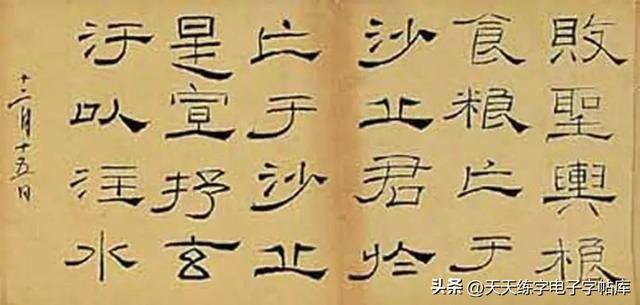 敗聖輿
食糧亡于
沙丘君於
亡于沙丘
是宣抒玄
汙以注水
十二月十五日
头条@天天练字电子字帖库